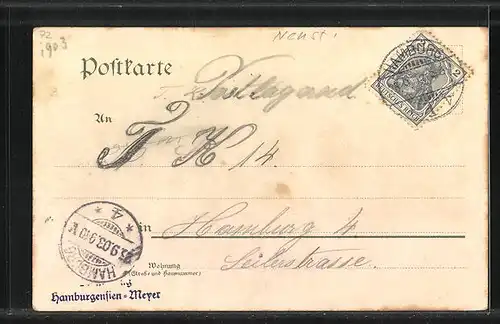 72
1903
Nenst.
Postkarte
Postlagernd
HAMBURG
2
DEUTSCHES REICH
An
T. K 14.
in Hamburg 4
Seilerstrasse.
Wohnung
(Straße und Hausnummer)
HAMBURG
* 4 *
9.03.9-10 V.
Hamburgensien-Meyer